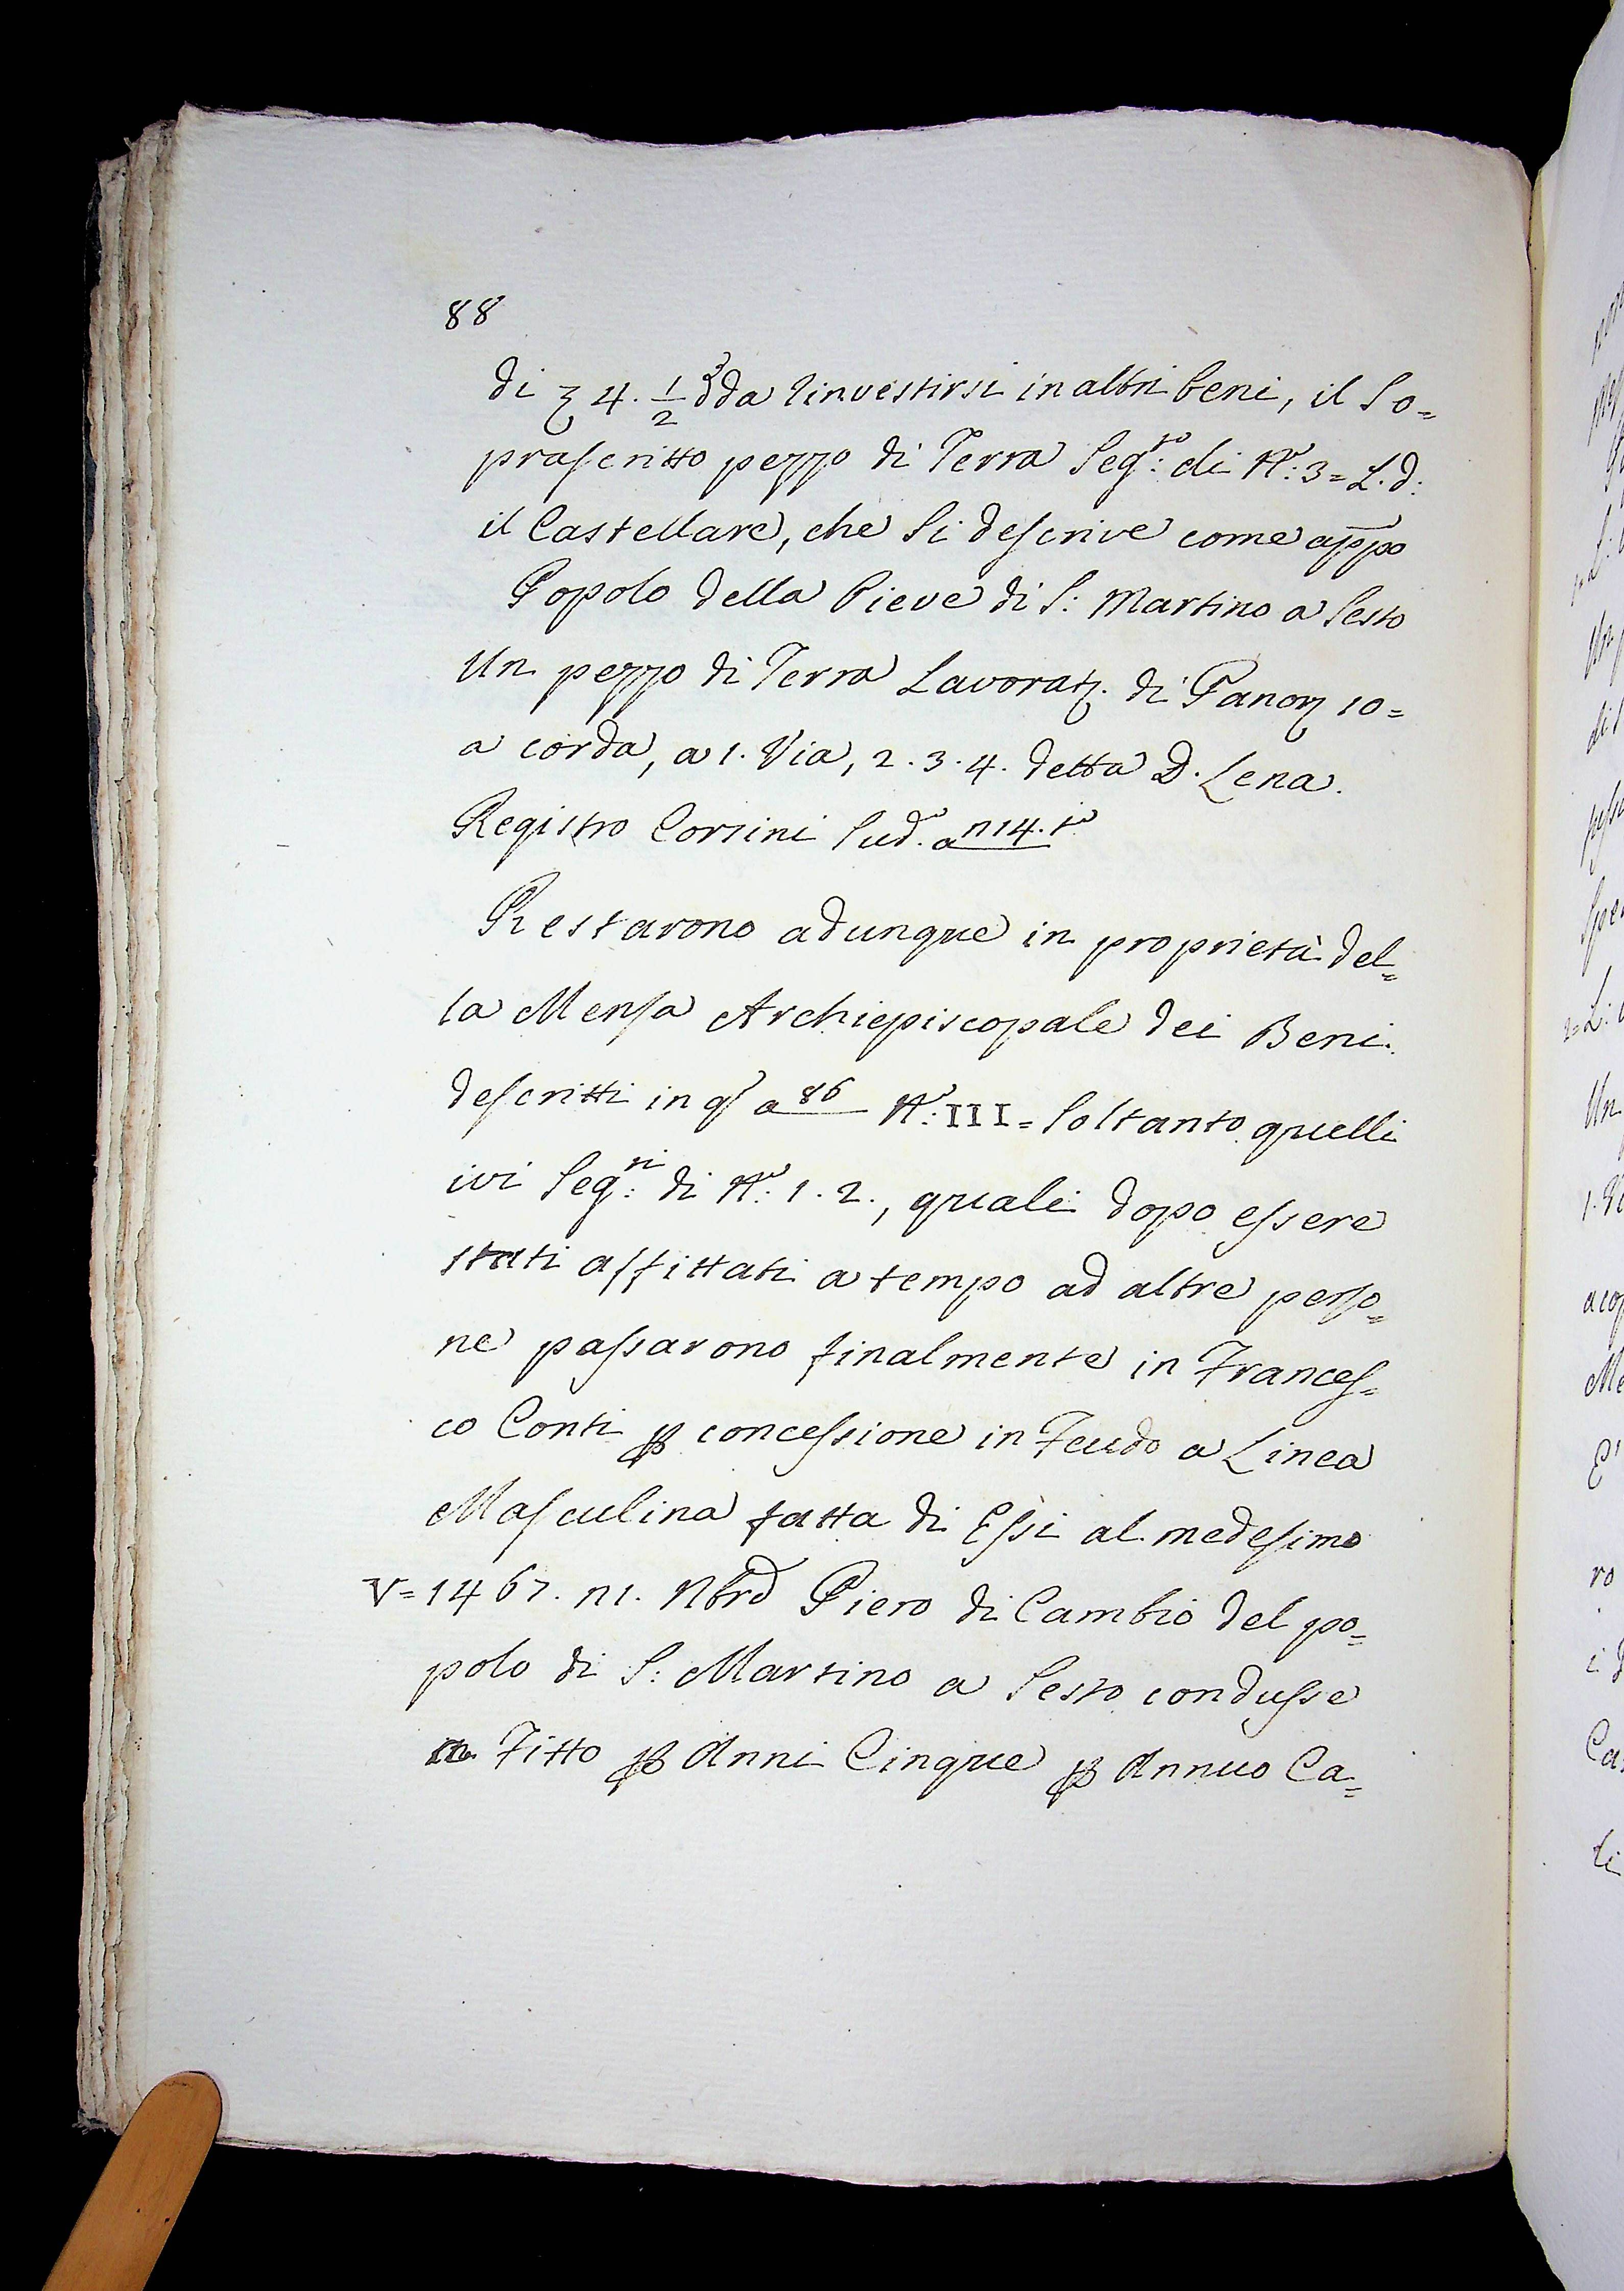 88
di ξ 4. 1/2 da rinvestirsi in altri beni, il So=
prascritto pezzo di Terra Seg.to: di N.o: 3= L. d:
il Castellare, che Si descrive come appo
Popolo della Pieve di S: Martino a Sesto
Un pezzo di Terra Lavorat. di Panor 10=
a corda, a 1. Via, 2. 3. 4. detta D. Lena.
Registro Corsini Sud.o a n 14. t.o
Restarono adunque in proprietà del=
la Mensa Archiepiscopale dei Beni
descritti in q.o a 86 N.o: III= Soltanto quelli
ivi Seg.ti: di N.o: 1. 2., quali dopo essere
stati affittati a tempo ad altre perso=
ne passarono finalmente in Frances=
co Conti p concessione in Feudo a Linea
Masculina fatta di Essi al medesimo
V= 1467. n 1. Nbre Piero di Cambio del po=
polo di S: Martino a Sesto condusse
in Fitto p Anni Cinque p Annuo Ca=